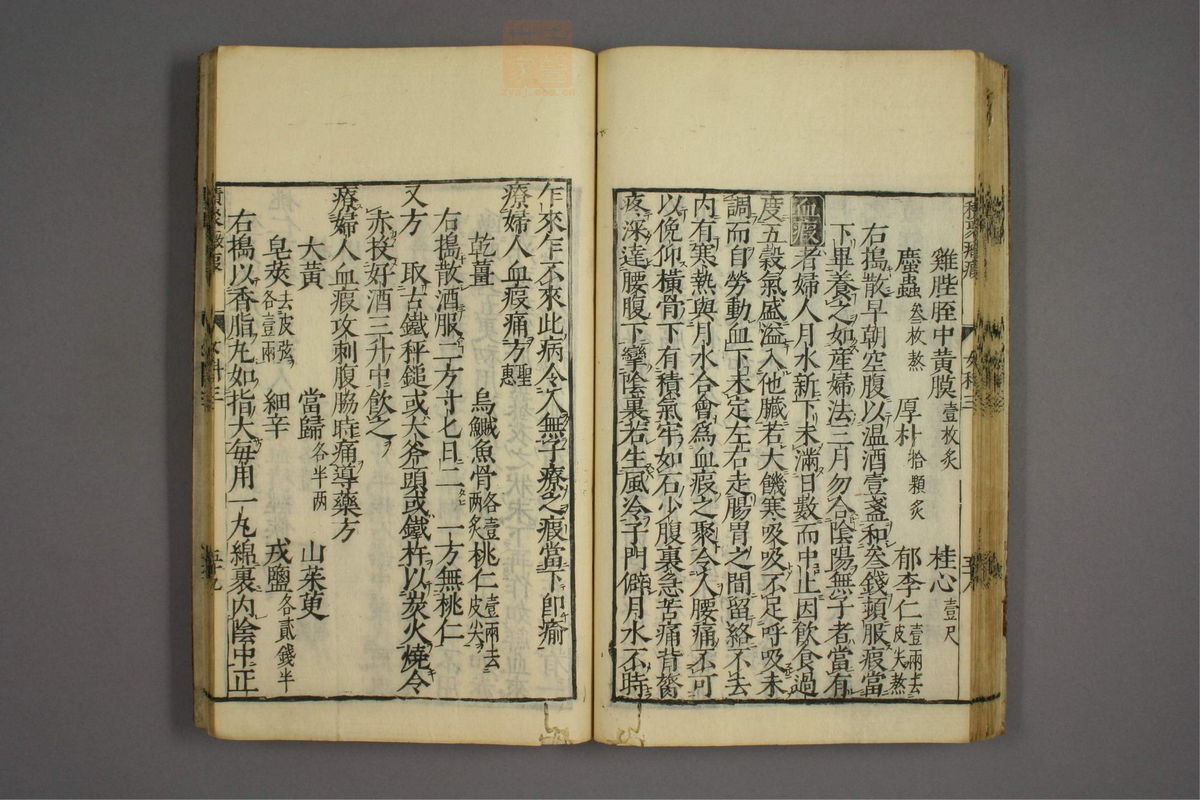 雞膍胵中黃膜壹枚炙 桂心壹尺
䗪蟲叁枚熬 厚朴拾顆炙 郁李仁壹兩去皮尖熬
右搗散早朝空腹以温酒壹盞和叁錢頓服瘕當
下畢養之如産婦法三月勿合陰陽無子者當有
血瘕者婦人月水新下未滿日數而中止因飲食過
度五穀氣盛溢入他臟若大饑寒吸吸不足呼吸未
調而自勞動血下未定左右走腸胃之間留絡不去
内有寒熱與月水合會為血瘕之聚令人腰痛不可
以俛仰橫骨下有積氣牢如石少腹裏急苦痛背膂
疼深達腰腹下攣陰裏若生風冷子門僻月水不時
乍來乍不來此病令人無子療之瘕當下即瘉
療婦人血瘕痛方聖惠
乾薑 烏鰂魚骨各壹兩炙 桃仁壹兩去皮尖
右搗散酒服二方寸匕日二 一方無桃仁
又方 取古鐵秤鎚或大斧頭或鐵杵以炭火燒令
赤投好酒三升中飲之
療婦人血瘕攻刺腹脇時痛導藥方
大黃 當歸各半兩 山茱萸
皂莢去皮弦各壹兩 細辛 戎鹽各貳錢半
右搗以香脂丸如指大每用一丸綿裹内陰中正